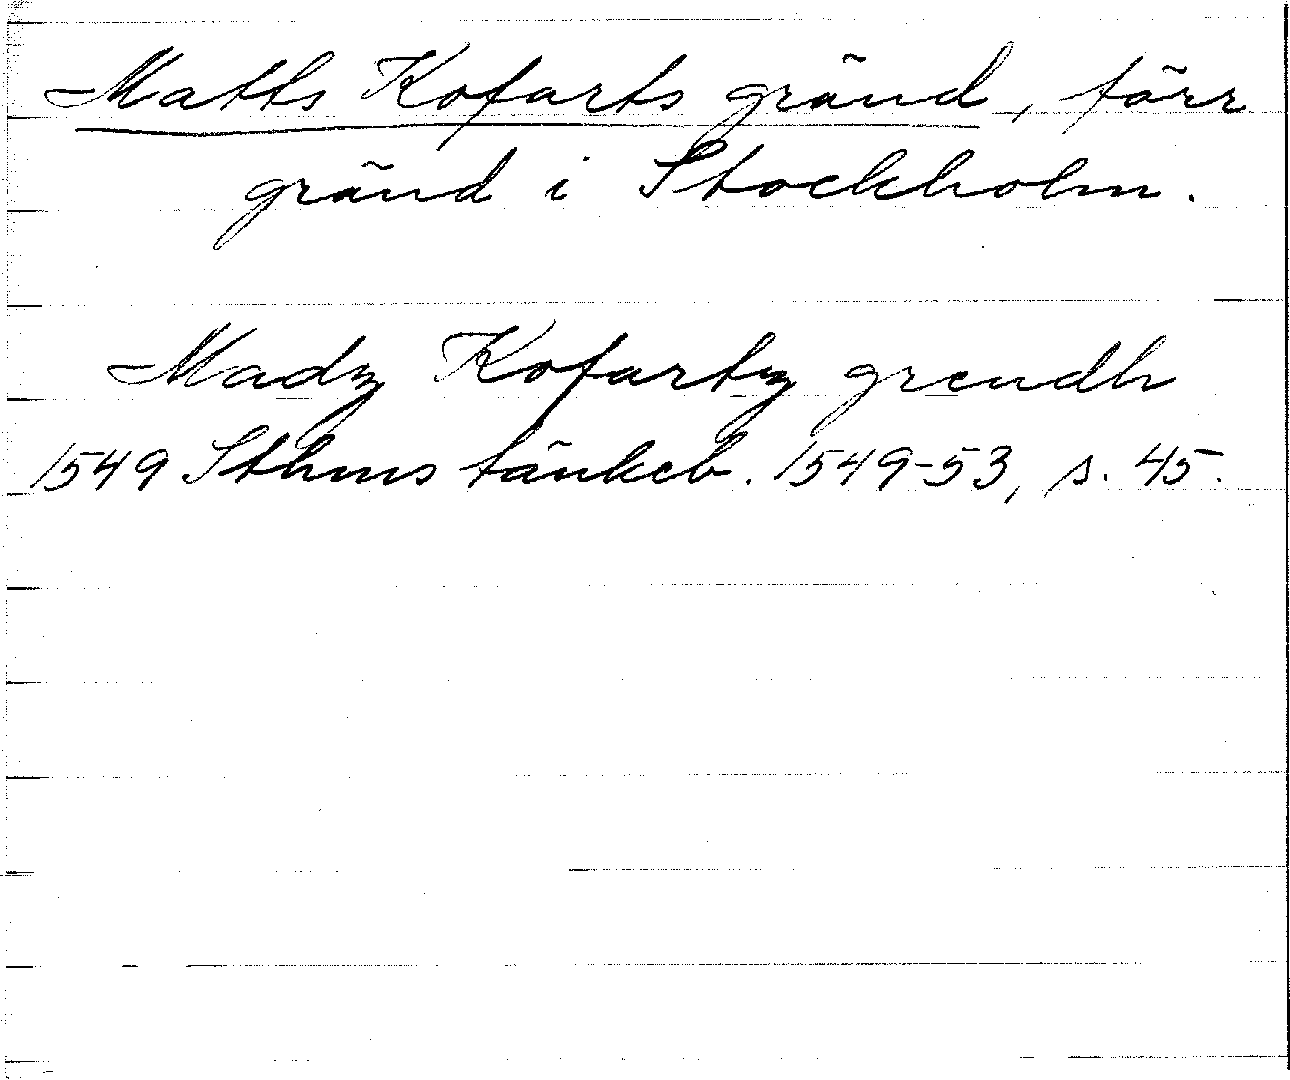 Matts Kofarts gränd, förr
gränd i Stockholm.
Madz Kofartz grendh
1549 Sthms tänkeb. 1549-53, s. 45.